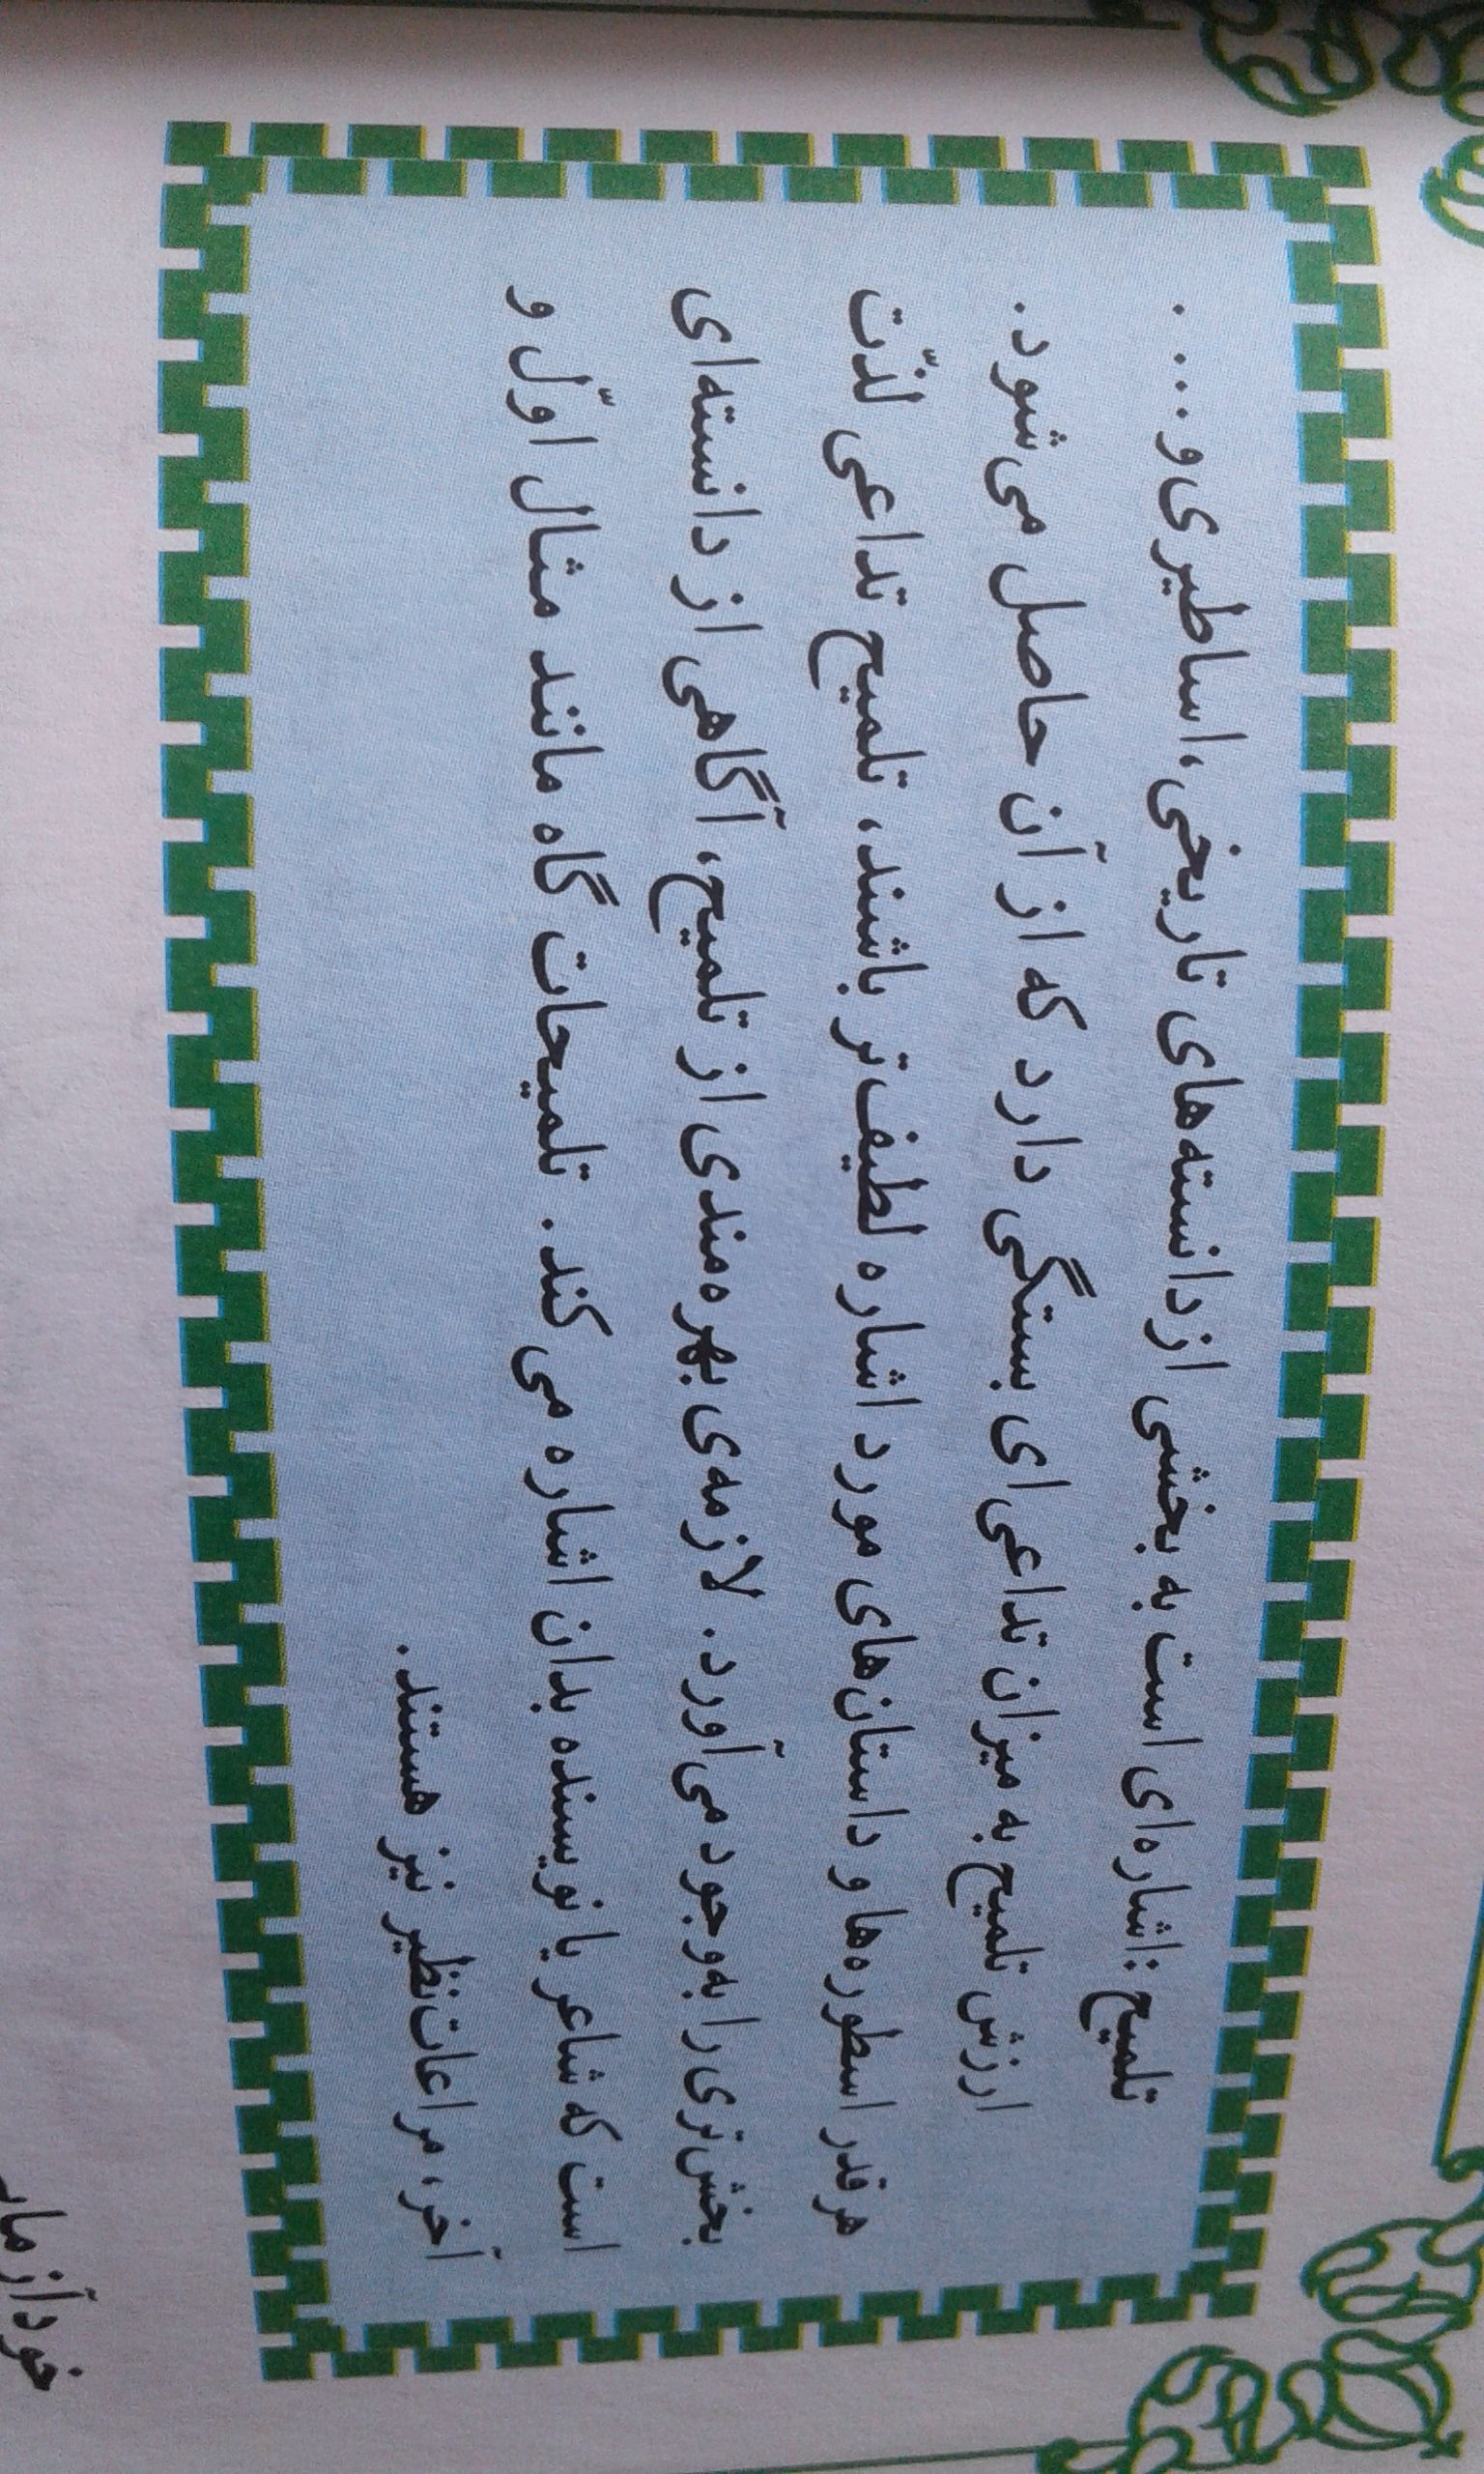 تلمیح : اشاره‌ای است به بخشی از دانسته‌های تاریخی، اساطیری و . . . .
ارزش تلمیح به میزان تداعی‌ای بستگی دارد که از آن حاصل می‌شود.
هر قدر اسطوره‌ها و داستان‌های مورد اشاره لطیف‌تر باشند، تلمیح تداعی لذّت
بخش‌تری را به‌وجود می‌آورد. لازمه‌ی بهره‌مندی از تلمیح، آگاهی از دانسته‌ای
است که شاعر یا نویسنده بدان اشاره می کند. تلمیحات گاه مانند مثال اوّل و
آخر، مراعات‌نظیر نیز هستند.